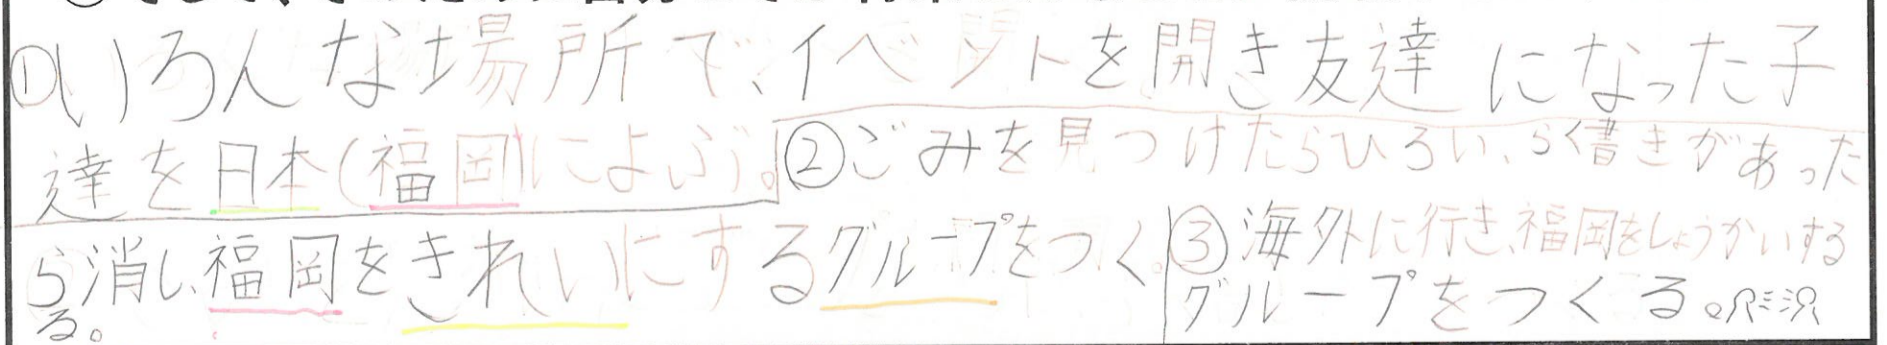 ①いろんな場所で、イベントを開き友達になった子
達を日本(福岡)によぶ。
②ごみを見つけたらひろい、らく書きがあった
ら消し、福岡をきれいにするグループをつく
る。
③海外に行き、福岡をしょうかいする
グループをつくる。